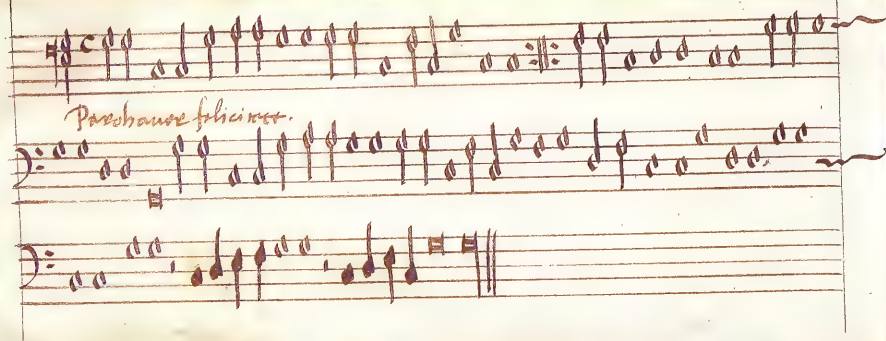 Per hauer felicitet.